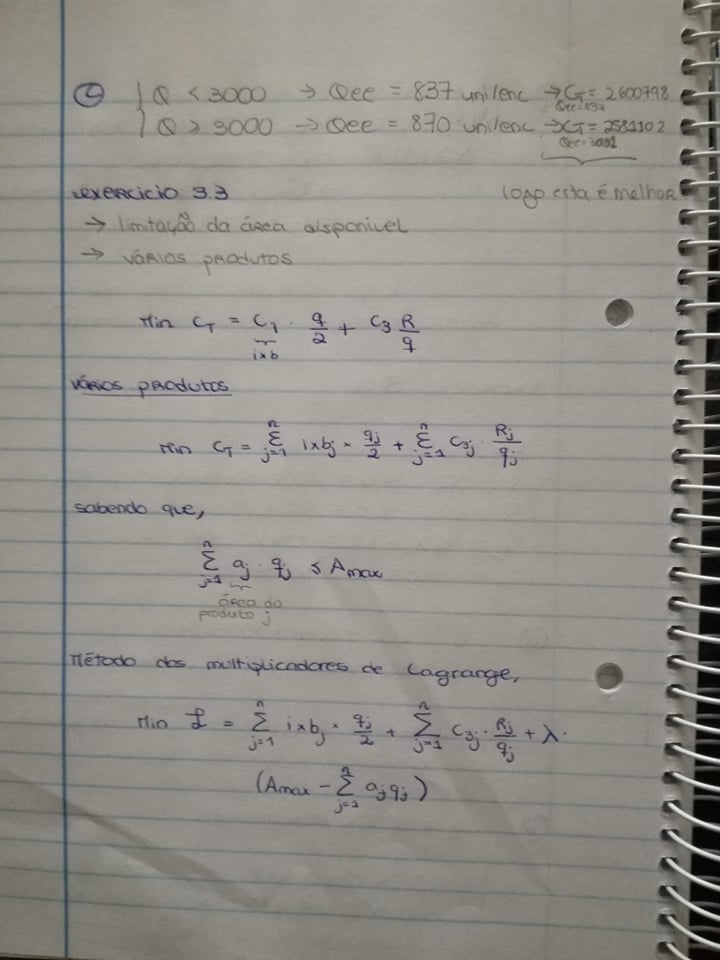 ④ { Q < 3000 → Qee = 837 uni/enc → CT = 2600798
Qee=837
Q ≥ 3000 → Qee = 870 uni/enc → CT = 2581102
Qee=3001
exercício 3.3 logo esta é melhor
→ limitação da área disponível
→ vários produtos
Min CT = C1 · q/2 + C3 R/q
i×b
vários produtos
Min CT = Σ(j=1, n) i×bj × qj/2 + Σ(j=1, n) C3j · Rj/qj
sabendo que,
Σ(j=1, n) aj · qj ≤ Amax
área do
produto j
Método dos multiplicadores de Lagrange,
Min ℒ = Σ(j=1, n) i×bj × qj/2 + Σ(j=1, n) C3j · Rj/qj + λ·
(Amax − Σ(j=1, n) aj qj)